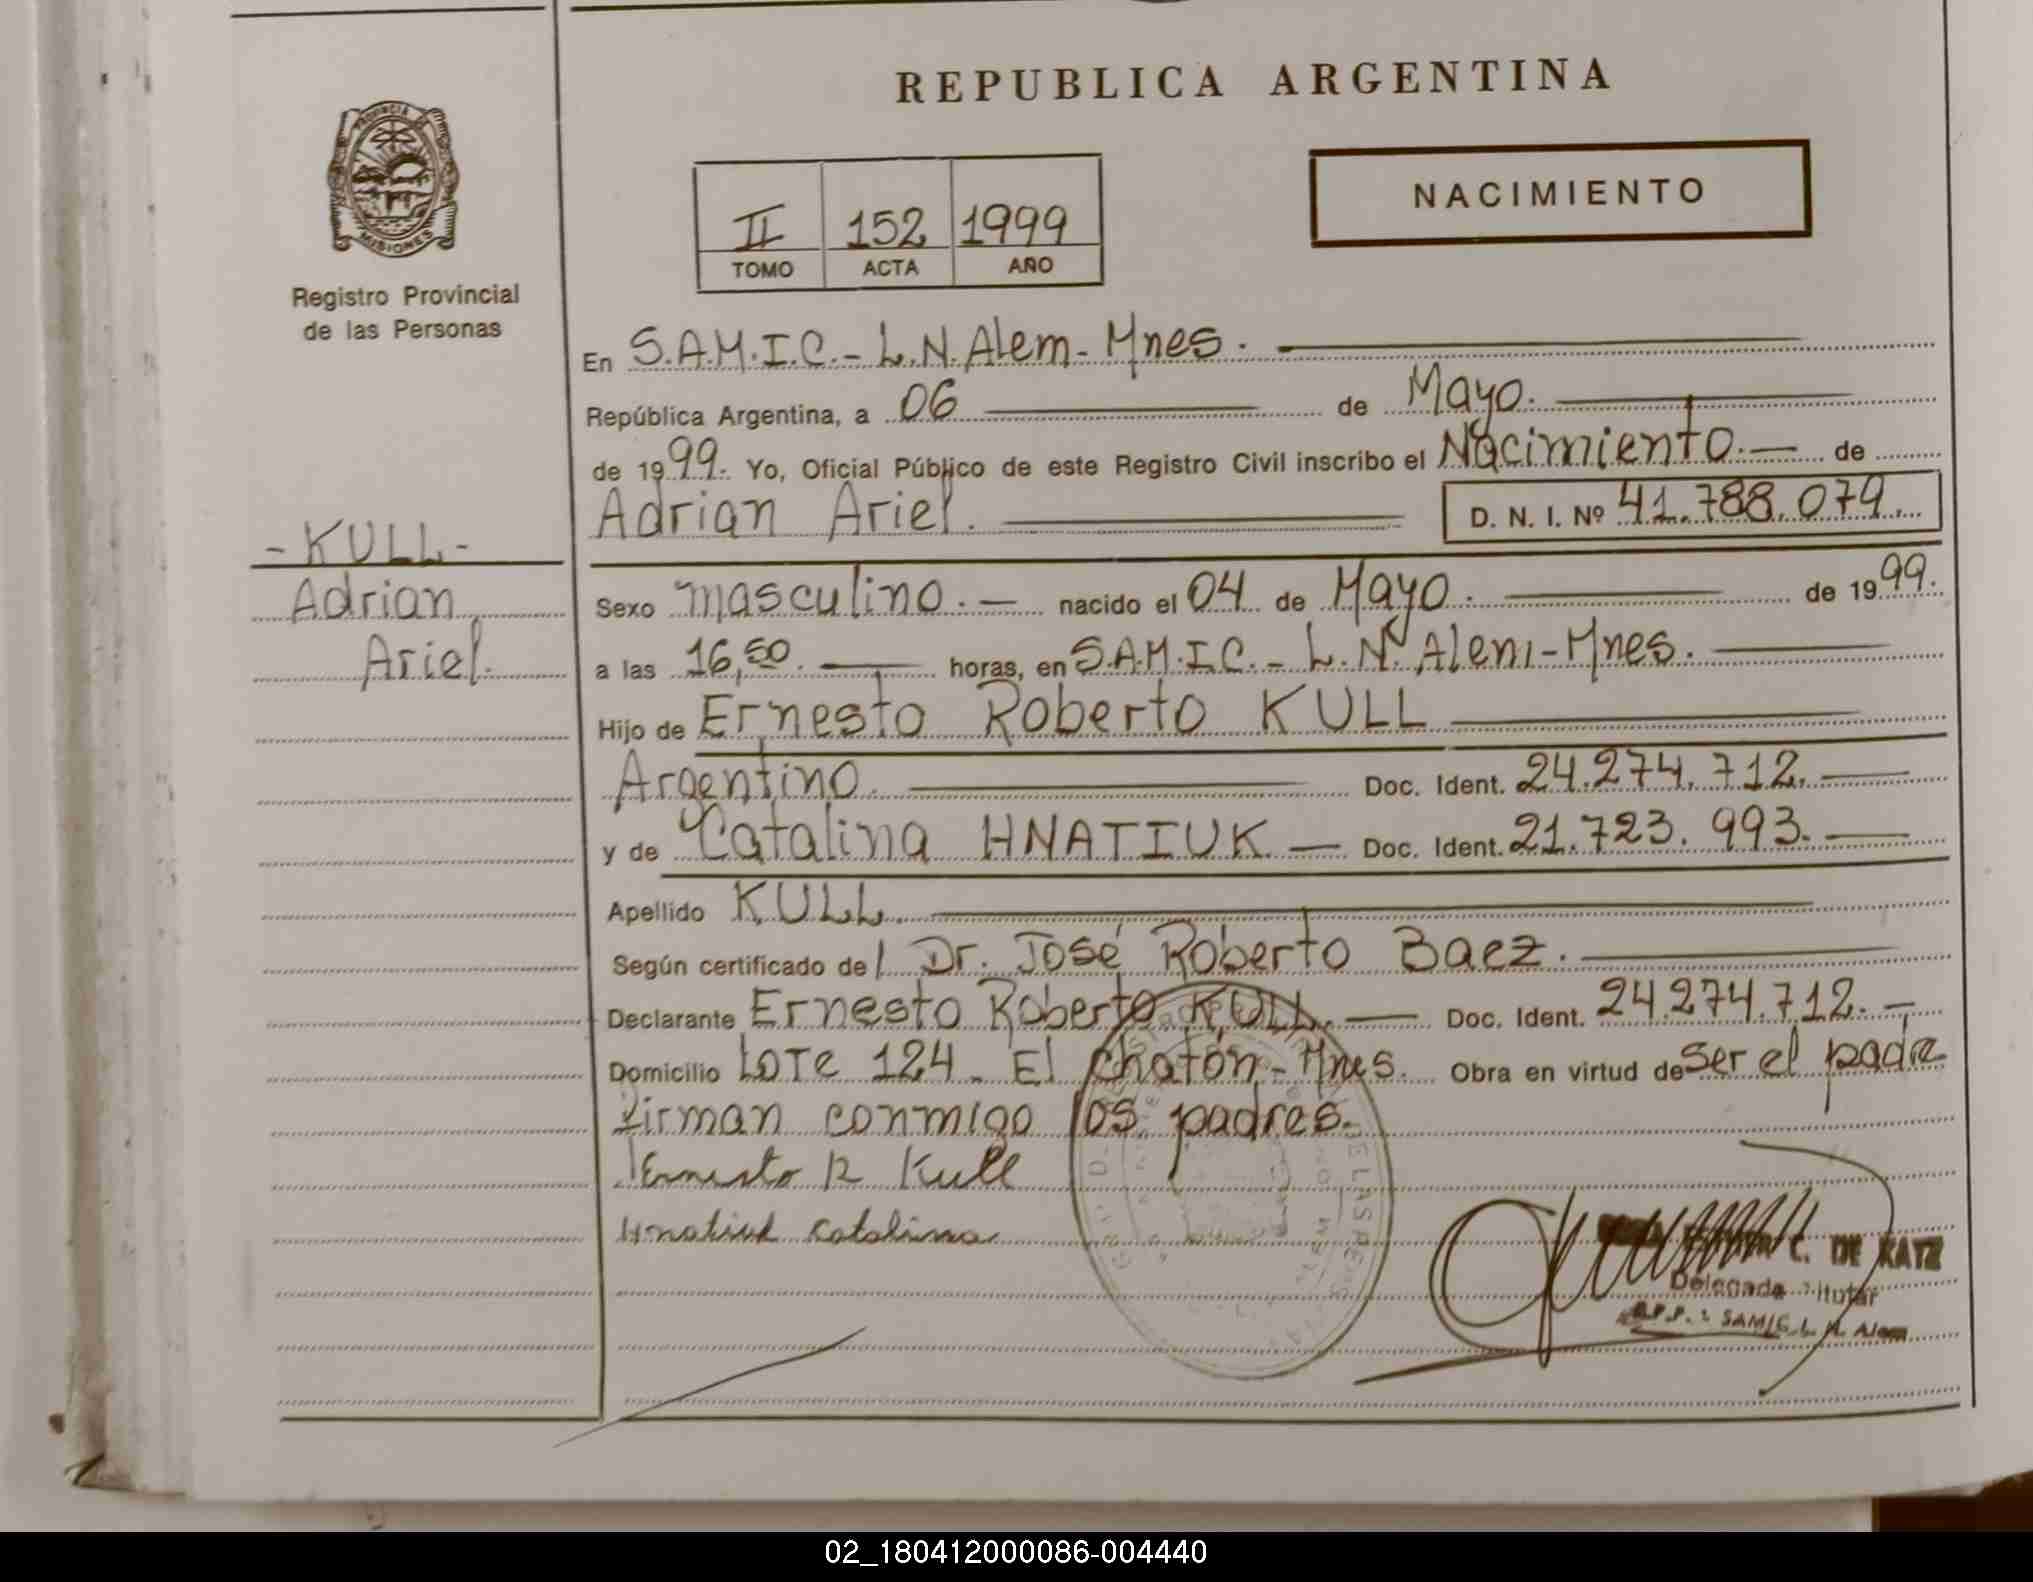 REPUBLICA ARGENTINA
PROVINCIA DE MISIONES
Registro Provincial
de las Personas
II 152 1999
TOMO ACTA AÑO
NACIMIENTO
En S.A.M.I.C.- L.N.Alem- Mnes.
República Argentina, a 06 de Mayo.
de 1999. Yo, Oficial Público de este Registro Civil inscribo el Nacimiento.- de
Adrian Ariel. D. N. I. Nº 41.788.079.
- KULL -
Adrian
Ariel.
Sexo masculino.- nacido el 04 de Mayo. de 1999.
a las 16,50. horas, en S.A.M.I.C.- L.N. Alem-Mnes.
Hijo de Ernesto Roberto KULL
Argentino. Doc. Ident. 24.274.712.
y de Catalina HNATIUK Doc. Ident. 21.723.993.
Apellido KULL.
Según certificado del Dr. José Roberto Baez.
Declarante Ernesto Roberto KULL. Doc. Ident. 24.274.712.-
Domicilio Lote 124 - El Chatón-Mnes. Obra en virtud de ser el padre
Firman conmigo los padres.
Ernesto R Kull
Hnatiuk Catalina
C. DE KATZ
Delegada Titular
R.P.P.: SAMIC L. N. Alem
02_180412000086-004440